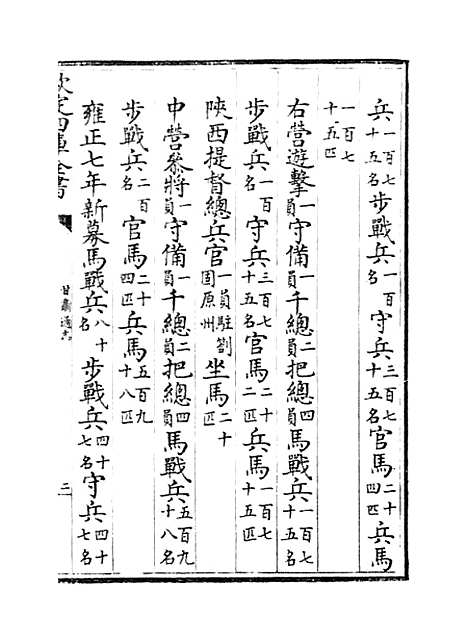 兵一百七十五名步戰兵一百名守兵三百七十五名官馬二十四匹兵馬
一百七十五匹
右營遊擊一員守備一員千總二員把總四員馬戰兵一百七十五名
步戰兵一百名守兵三百七十五名官馬二十二匹兵馬一百七十五匹
陝西提督總兵官一員駐劄固原州坐馬二十匹
中營叅將一員守備一員千總二員把總四員馬戰兵五百九十八名
步戰兵二百名官馬二十四匹兵馬五百九十八匹
雍正七年新募馬戰兵八十名步戰兵四十七名守兵四十七名
欽定四庫全書
甘肅通志
三